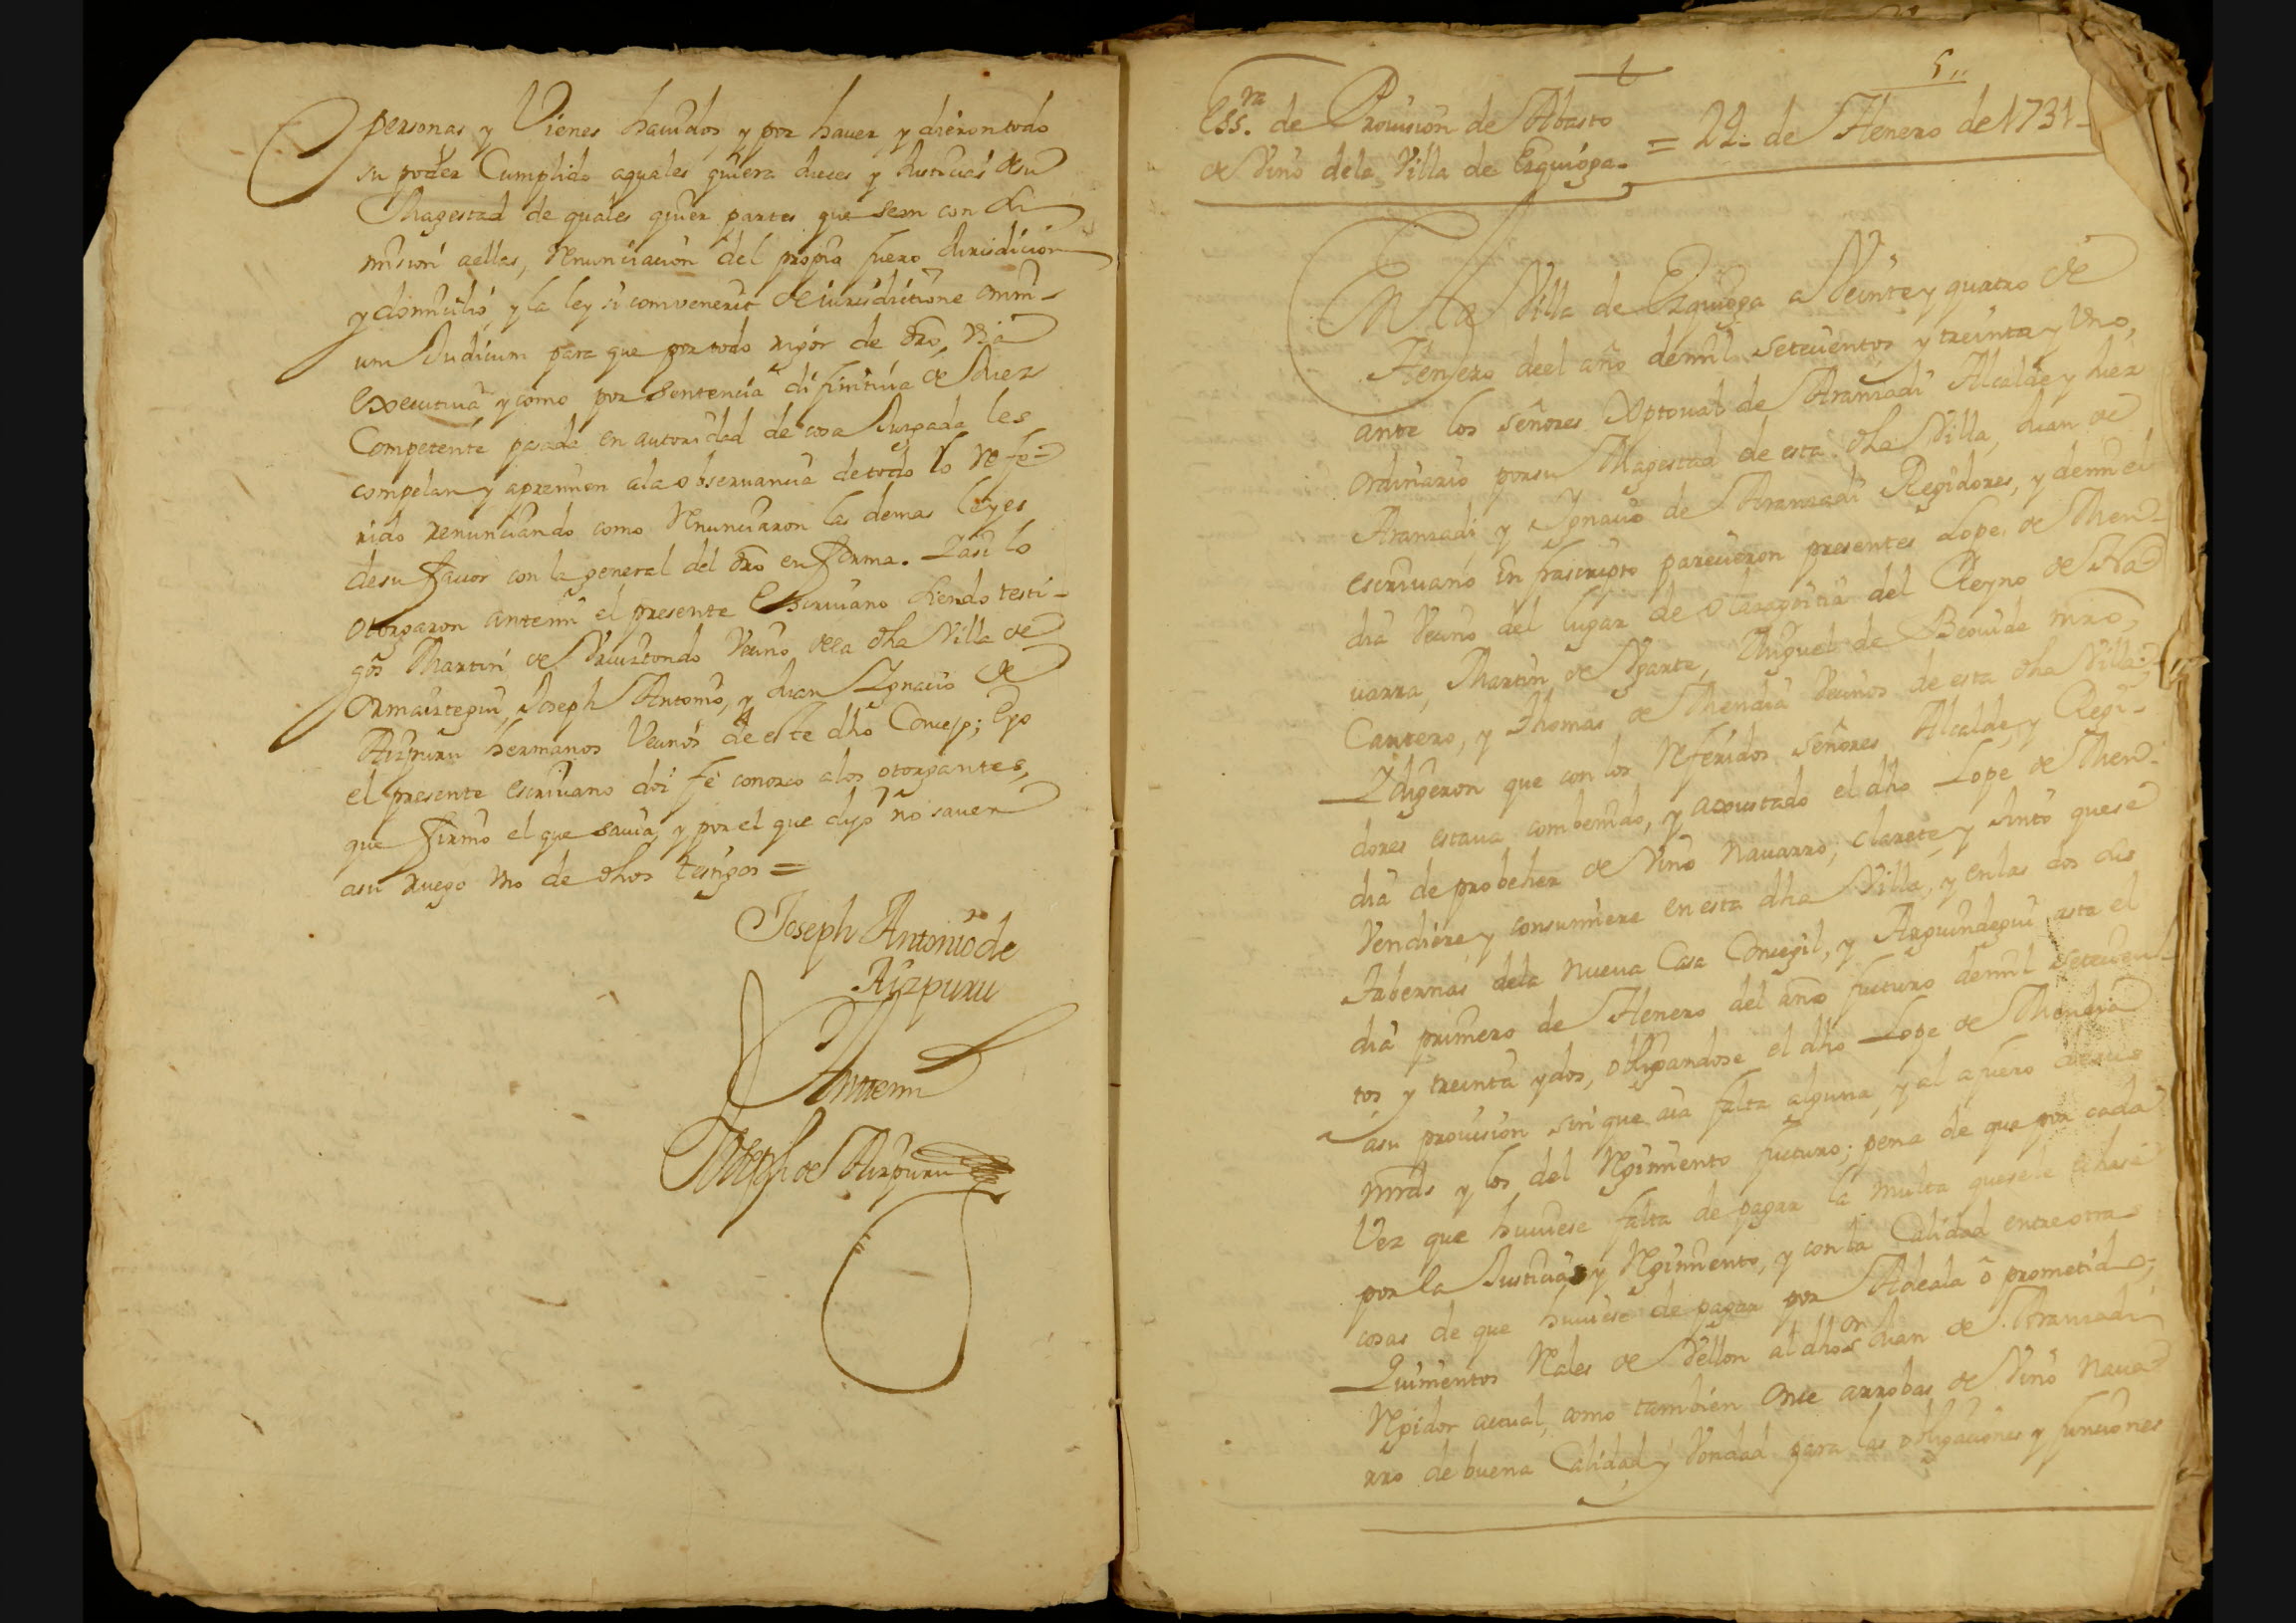 personas y Vienes hauidos y por hauer y dieron todo
su poder Cumplido aquales quiera Jueces y Justicias desu
Magestad de quales quier partes que sean con su
mision aellas, Renunciacion del propia fuero Jurisdicion
y domicilio, y la ley si combenerit de iurisdictione omni-
um Judicum para que por todo rigor de dro, via
executiua y como por sentencia difinitiua de Juez
Competente pasada en autoridad de cosa Jusgada les
compelan y apremien ala obseruancia detodo lo refe-
rido renunciando como Renunciaron las demas leyes
desu fauor con la general del dro en forma. Y asi lo
otorgaron antemi el presente Escriuano siendo testi-
gos Martin de Vrruiztondo Vecino dela dha Villa de
Ormaiztegui, Joseph Antonio, y Juan Ygnacio de
Aizpuru hermanos Vecinos de este dho Concejo; e yo
el presente escriuano doi fe conozco alos otorgantes,
que firmo el que sauia, y por el que dijo no sauer
asu ruego vno de dhos testigos =
Joseph Antonio de
Aizpuru
Antemi
Joseph de Aizpuru
5
Ess.ra de Prouision de Abasto
de Vino dela Villa de Ezquioga = 22 de Henero de 1731
En la Villa de Ezquioga a Veinte y quatro de
Henero deel año demil setecientos y treinta y Vno,
ante los señores Xptoual de Aranzadi Alcalde y Juez
ordinario porsu Magestad de esta dha Villa, Juan de
Aranzadi y Ygnacio de Aranzadi Regidores, y demi el
escriuano infrascripto parecieron presentes Lope de Men-
dia Vecino del lugar de Olazagutia del Reyno de Na
uarra, Martin de Vgarte, Miguel de Beouide mro
Cantero, y Thomas de Mendia Vecinos de esta dha Villa:
Y digeron que con los Referidos señores Alcalde, y Regi-
dores estaua combenido, y axustado el dho Lope de Men-
dia de probeher de Vino Nauarro, clarete y tinto quese
Vendiere y consumiere en esta dha Villa, y enlas dos
Tabernas dela nueua Casa Concegil, y Arguindegui asta el
dia primero de Henero del año futuro demil setecien-
tos y treinta y dos, obligandose el dho Lope de Mendia
asu prouision sin que aia falta alguna, y al afuero desus
mrds y los del Regimiento futuro; pena de que por cada
Vez que huuiese falta de pagar la multa quesele echase
por la Justicia y Regimiento, y con la Calidad entre otras
cosas de que huuiese de pagar por Adeala o prometido,
Quinientos Reales de Vellon al dho s.or Juan de Aranzadi
Regidor actual, como tambien Once arrobas de Vino Naua
rro de buena Calidad, y Vondad para las obligaciones y funciones